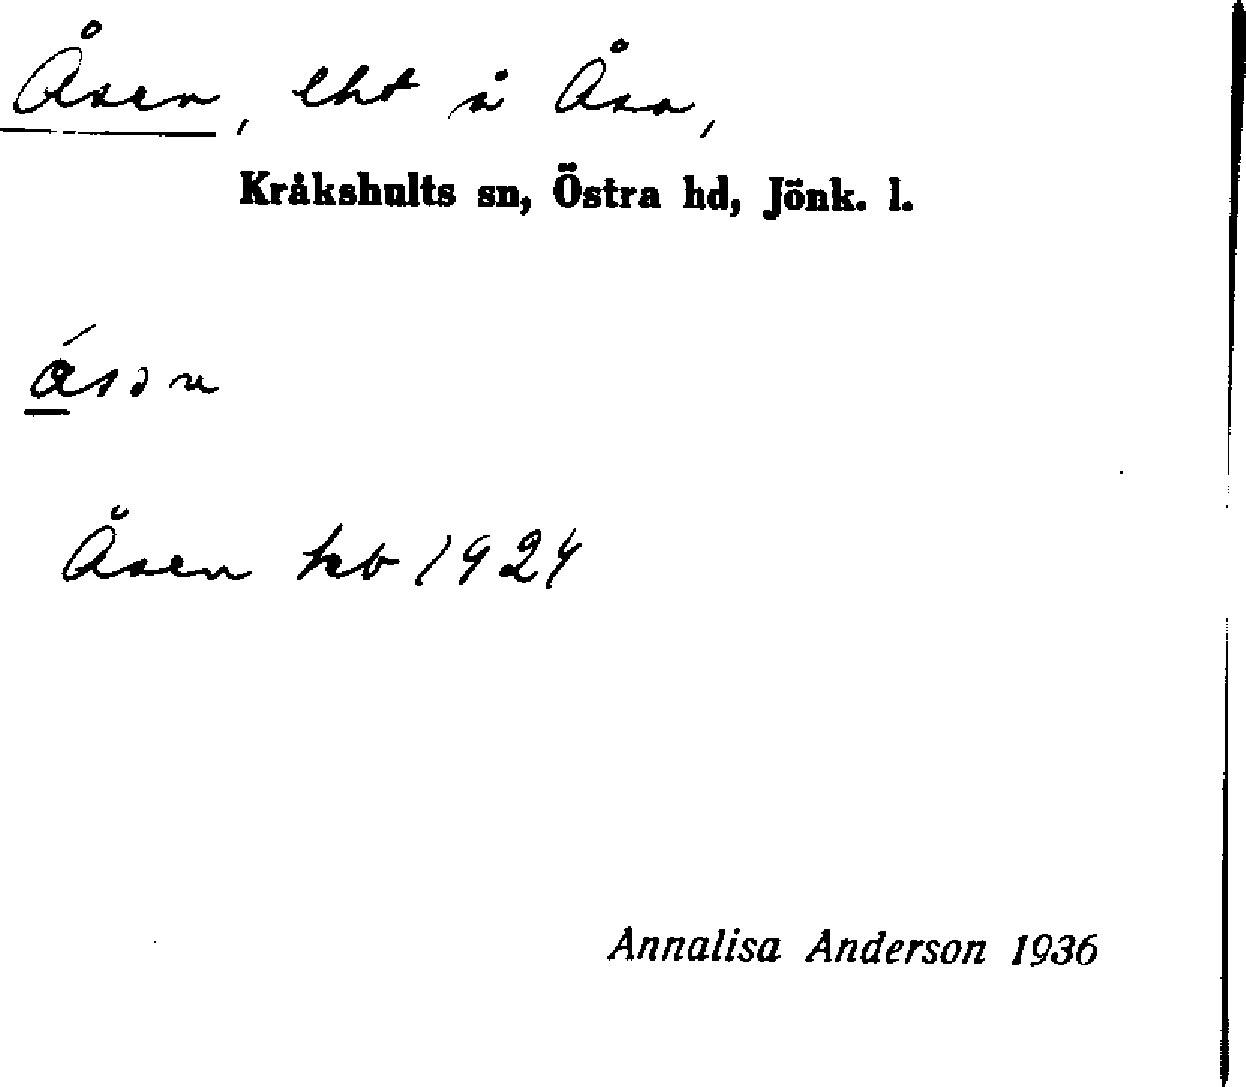 Åsen, lht å Åsa,
Kråkshults sn, Östra hd, Jönk. l.
ásən
Åsen kb 1924
Annalisa Anderson 1936